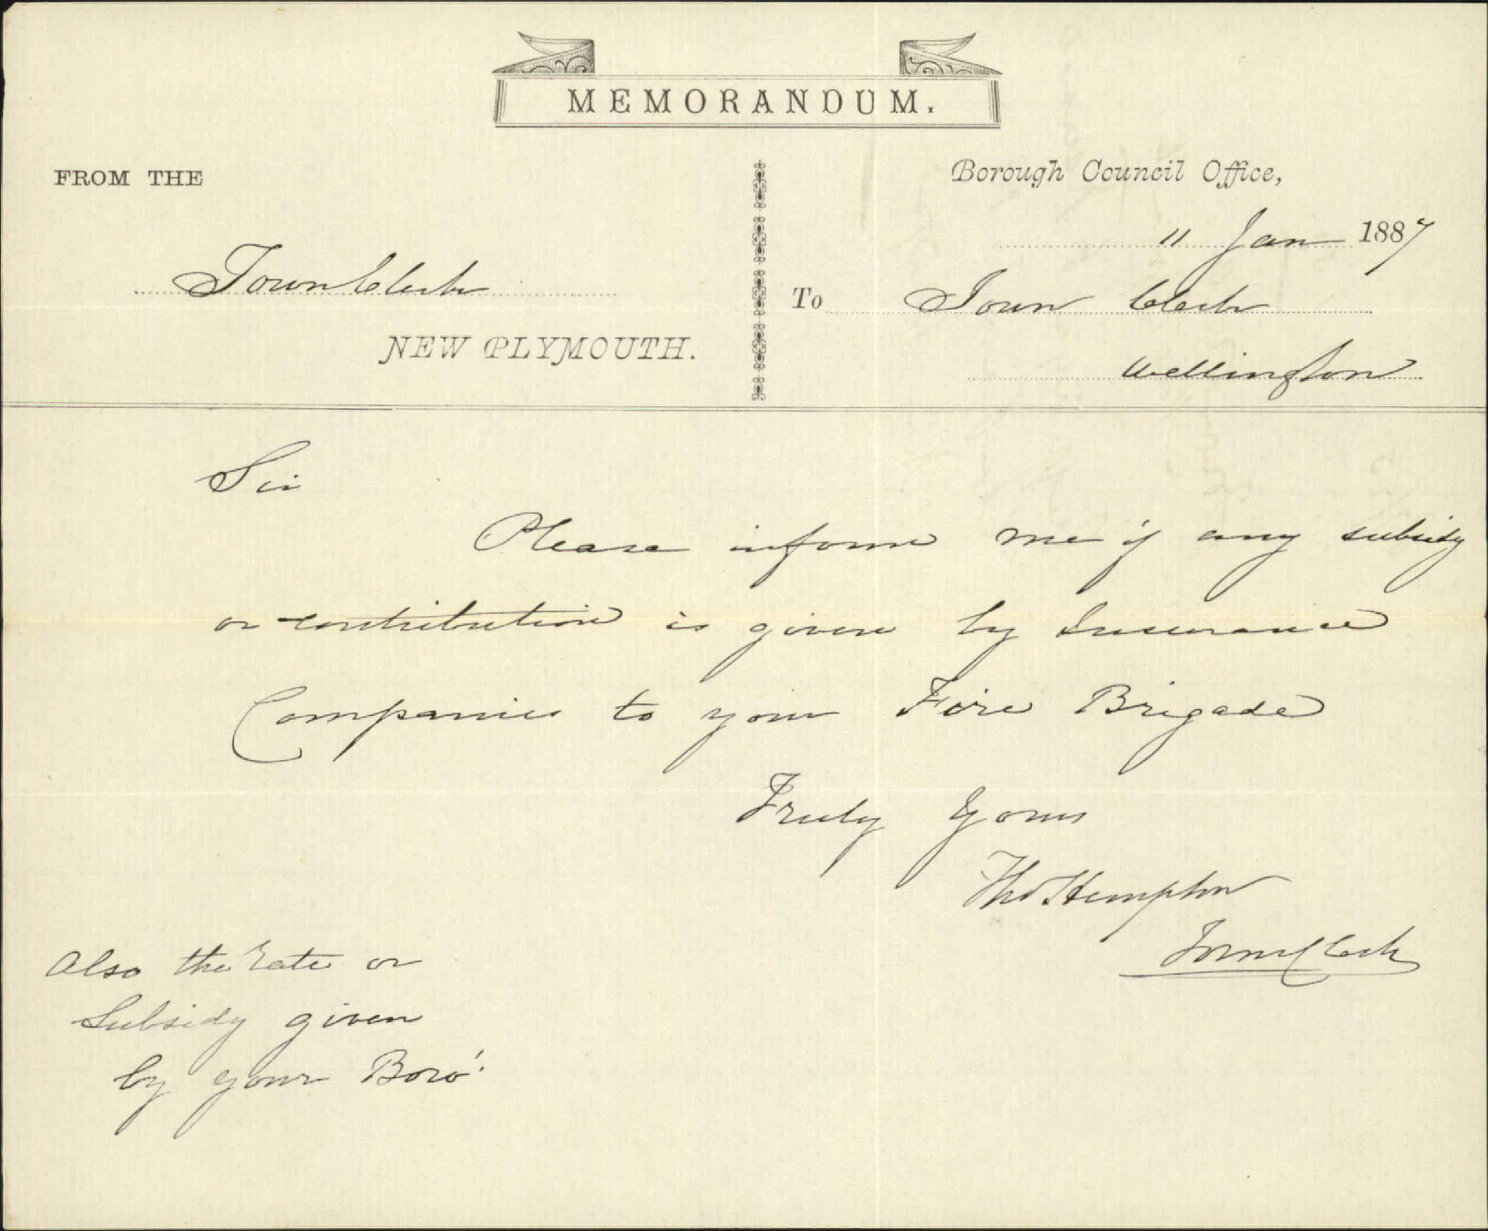 MEMORANDUM.
FROM THE
Town Clerk
NEW PLYMOUTH.
Borough Council Office,
11 Jan 1887
To Town Clerk
Wellington
Sir
Please inform me if any subsidy
or contribution is given by Insurance
Companies to your Fire Brigade
Truly Yours
Thos Hempton
Town Clerk
Also the rate or
Subsidy given
by your Boro'.